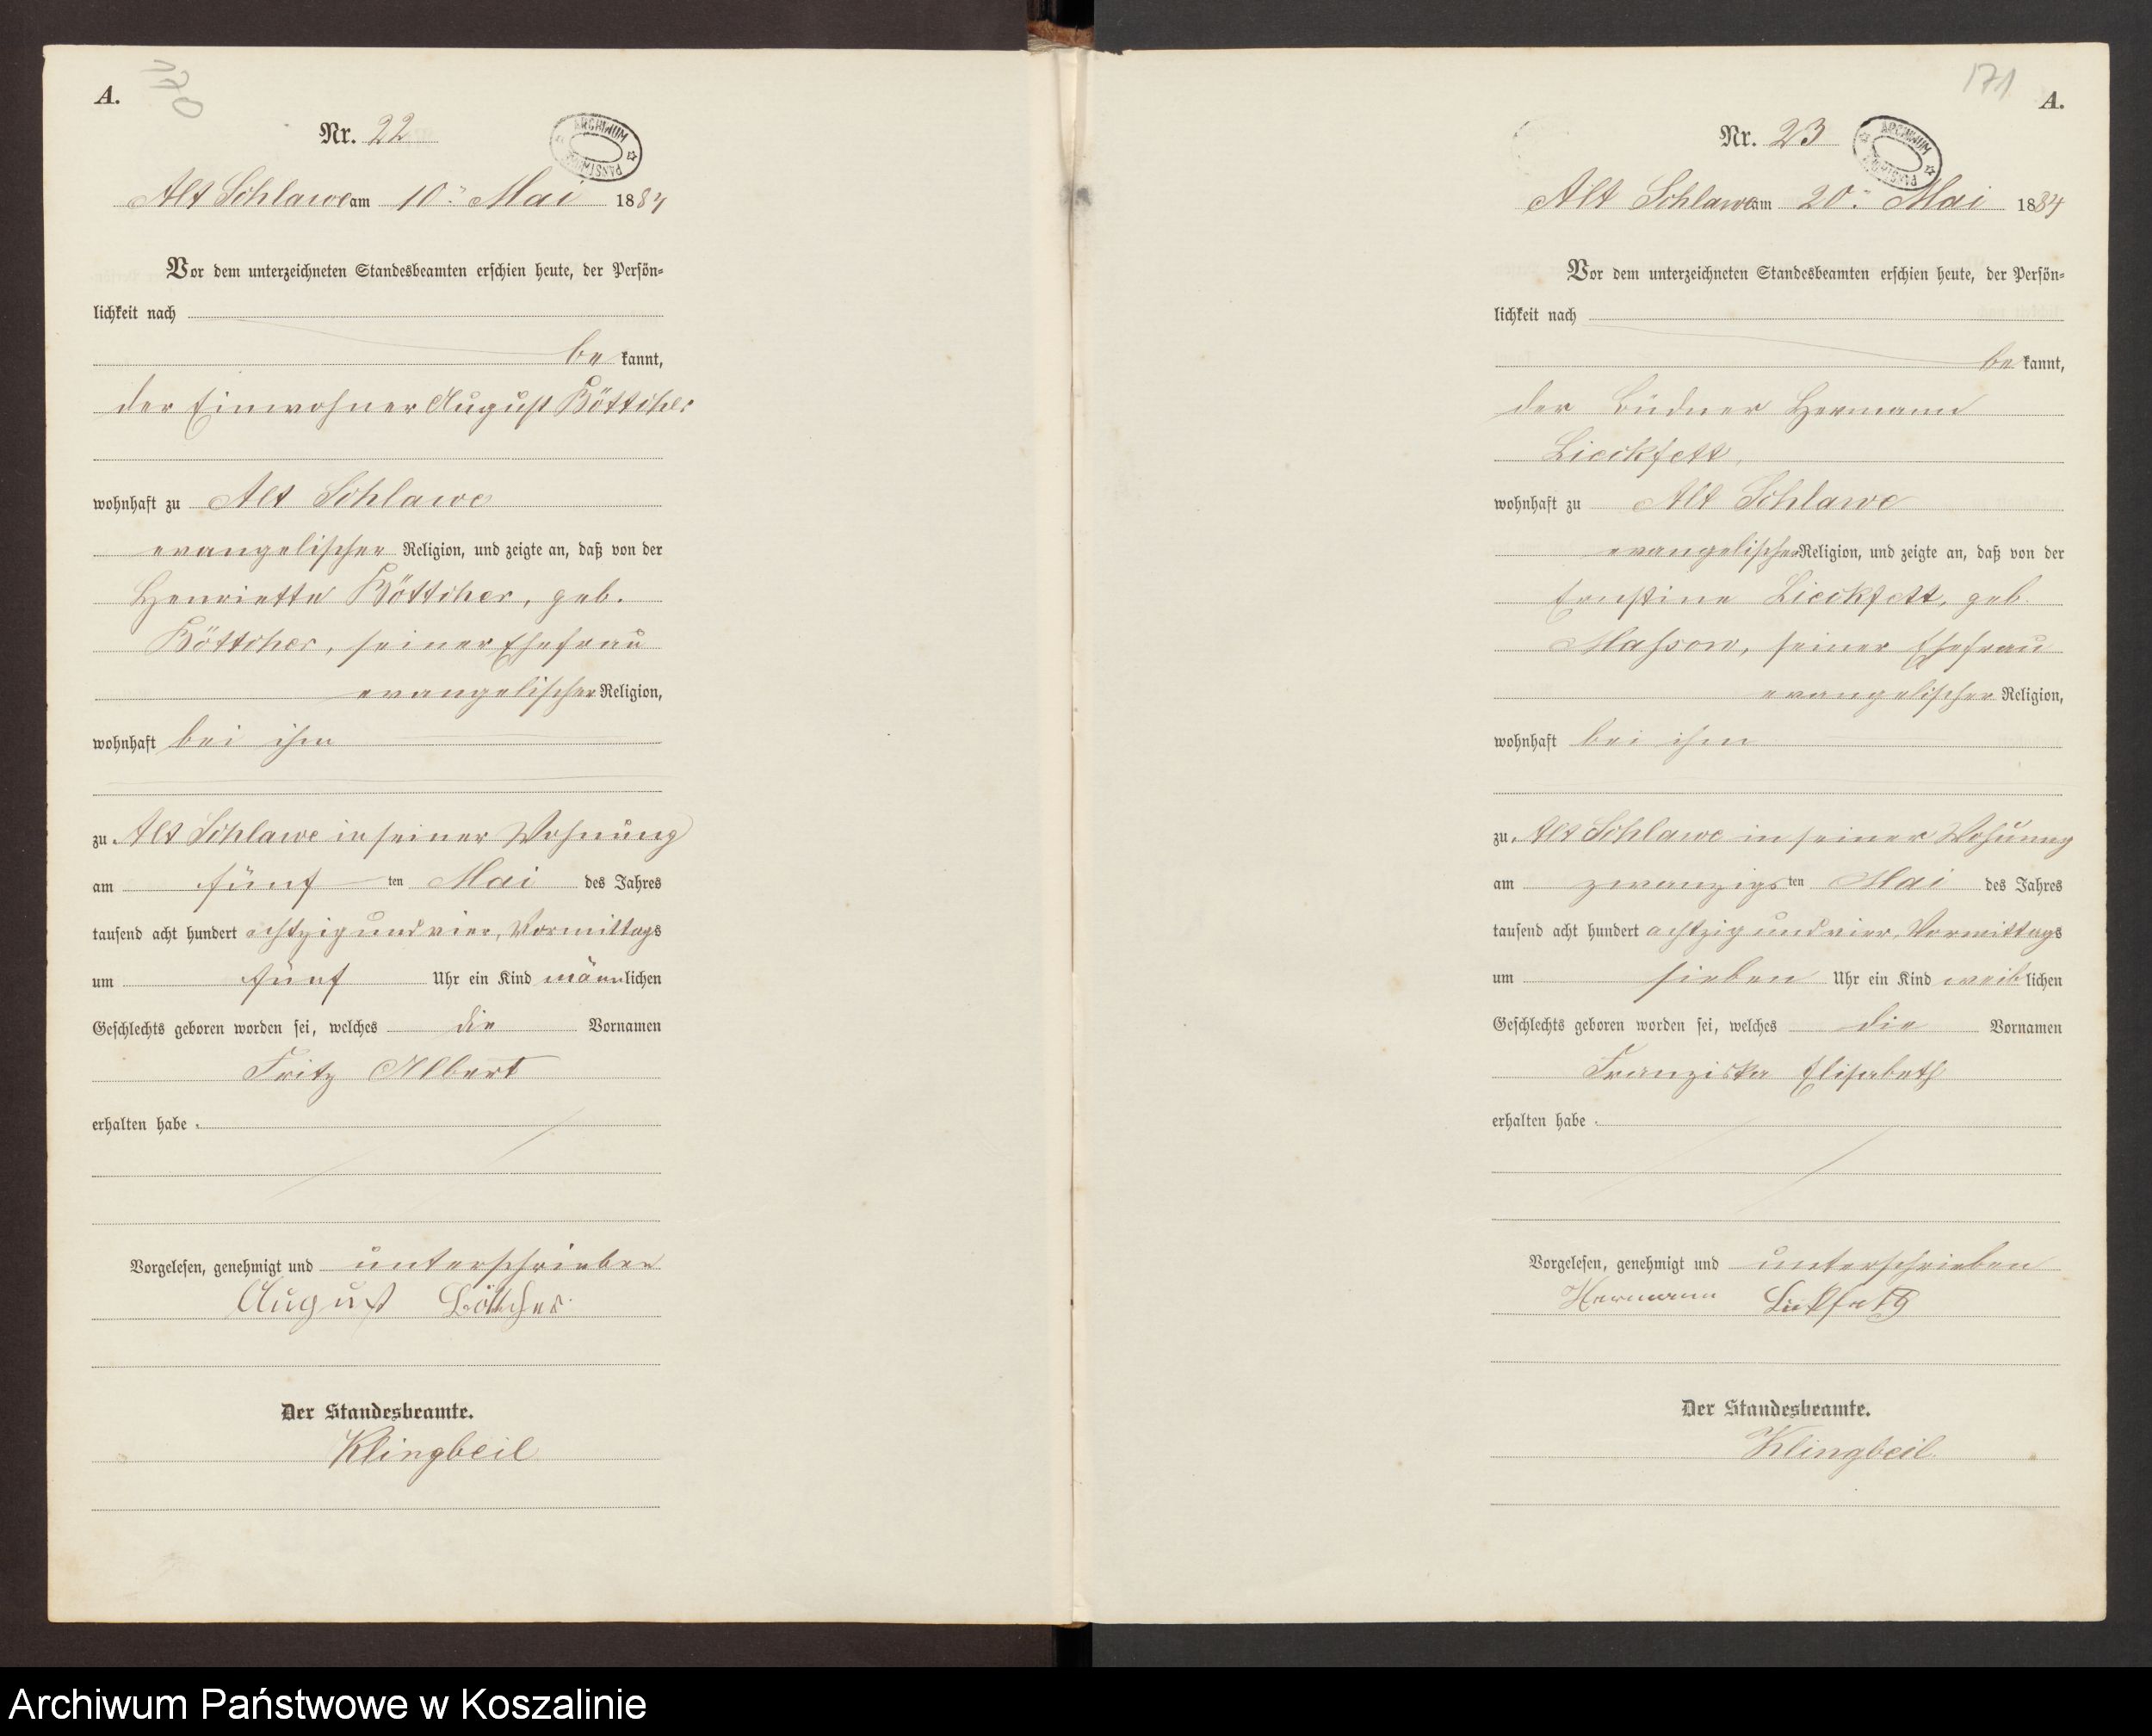 A.
Nr. 22
ARCHIWUM PAŃSTWOWE
Alt Schlawe am 10ten Mai 1884
Vor dem unterzeichneten Standesbeamten erschien heute, der Persön=
lichkeit nach
be kannt,
der Einwohner August Böttcher
wohnhaft zu Alt Schlawe
evangelischer Religion, und zeigte an, daß von der
Henriette Böttcher, geb.
Böttcher, seiner Ehefrau
evangelischer Religion,
wohnhaft bei ihm
zu Alt Schlawe in seiner Wohnung
am fünf ten Mai des Jahres
tausend acht hundert achtzig und vier, Vormittags
um fünf Uhr ein Kind männlichen
Geschlechts geboren worden sei, welches die Vornamen
Fritz Albert
erhalten habe.
Vorgelesen, genehmigt und unterschrieben
August Böttcher
Der Standesbeamte.
Klingbeil
171
A.
Nr. 23
ARCHIWUM PAŃSTWOWE
Alt Schlawe am 20ten Mai 1884
Vor dem unterzeichneten Standesbeamten erschien heute, der Persön=
lichkeit nach
be kannt,
der Büdner Hermann
Lieckfett,
wohnhaft zu Alt Schlawe
evangelischer Religion, und zeigte an, daß von der
Ernstine Lieckfett, geb.
Massow, seiner Ehefrau
evangelischer Religion,
wohnhaft bei ihm
zu Alt Schlawe in seiner Wohnung
am zwanzigs ten Mai des Jahres
tausend acht hundert achtzig und vier, Vormittags
um sieben Uhr ein Kind weiblichen
Geschlechts geboren worden sei, welches die Vornamen
Franziska Elisabeth
erhalten habe.
Vorgelesen, genehmigt und unterschrieben
Hermann
Der Standesbeamte.
Klingbeil.
Archiwum Państwowe w Koszalinie